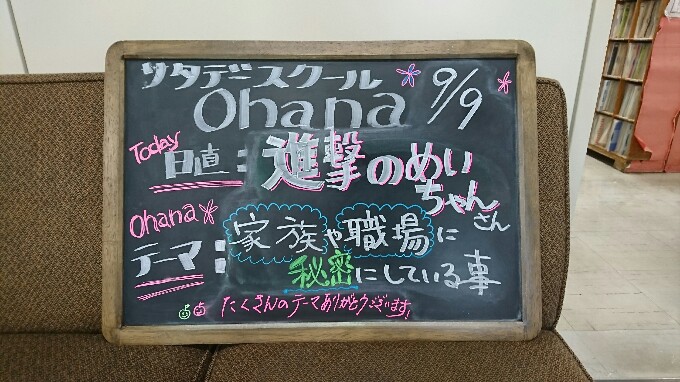 サタデースクール
Ohana 9/9
Today
日直:進撃のめい
ちゃんさん
Ohana
テーマ:家族や職場に
秘密にしている事
たくさんのテーマありがとうございます!